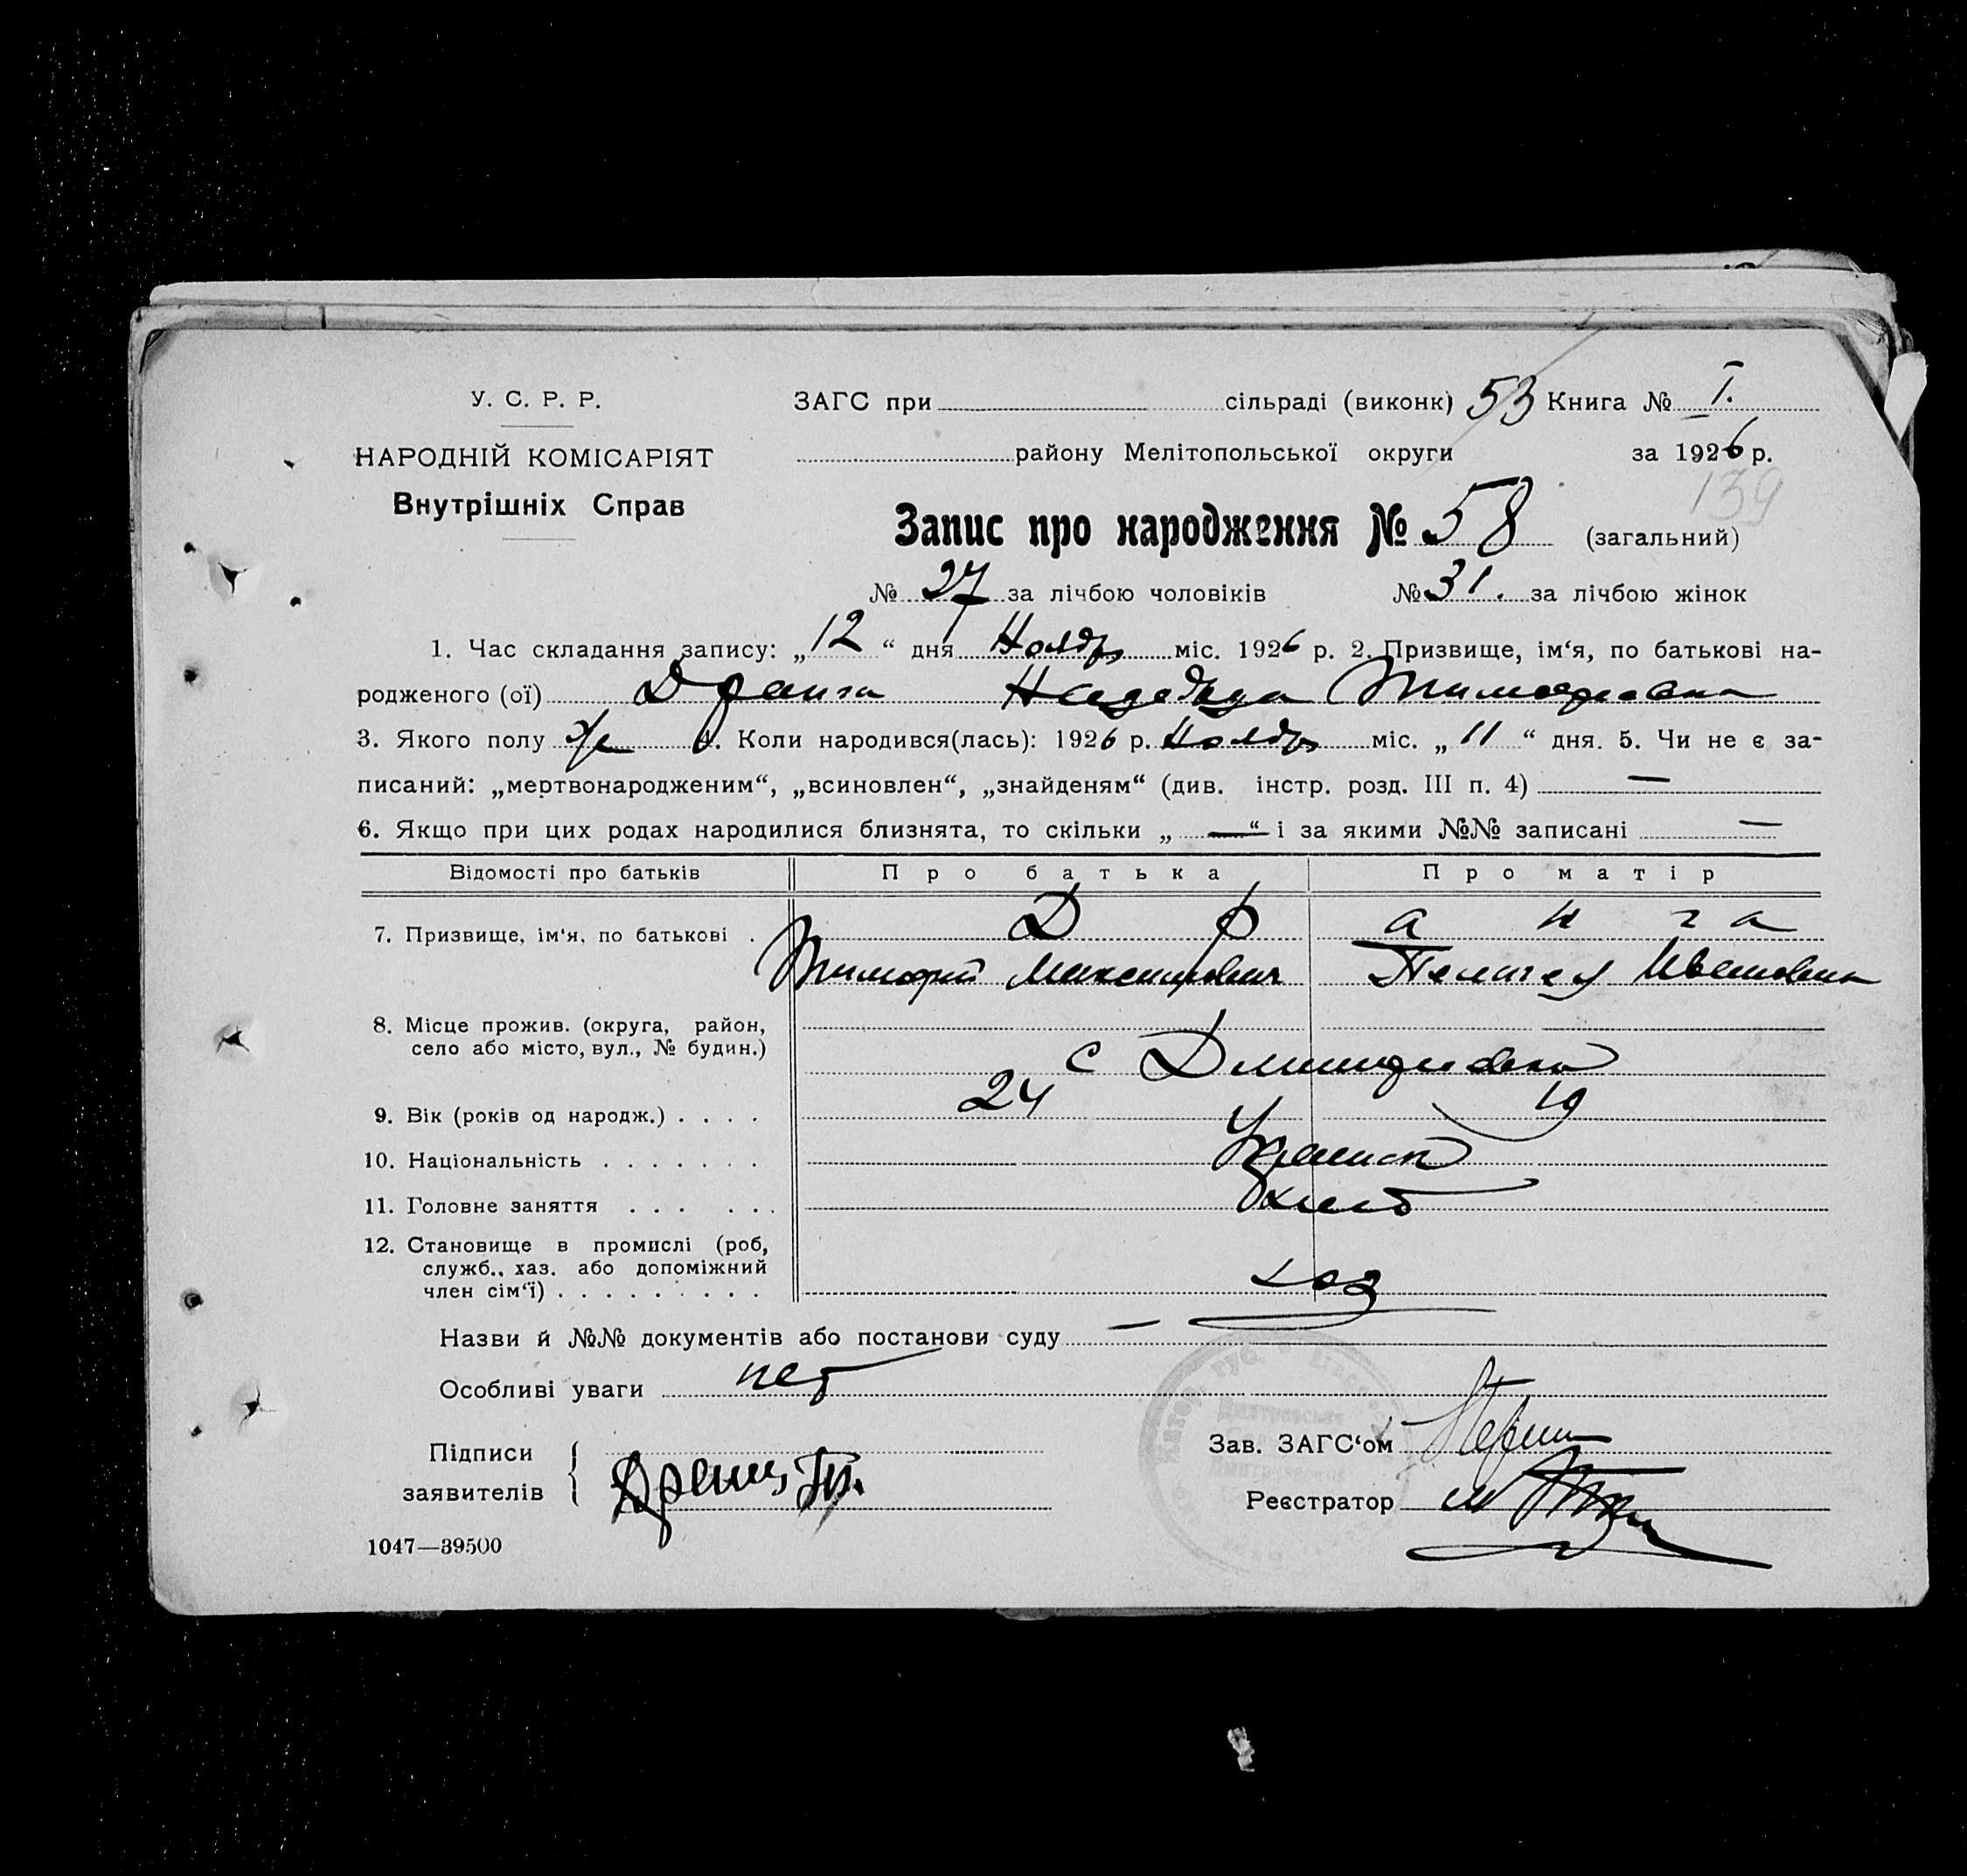 У. С. Р. Р.
ЗАГС при сільраді (виконк) 53 Книга № I.
НАРОДНІЙ КОМІСАРІЯТ
району Мелітопольської округи за 1926 р.
139
Внутрішніх Справ
Запис про народження № 58 (загальний)
№ 27 за лічбою чоловіків № 31. за лічбою жінок
1. Час складання запису: „12“ дня Ноябр міс. 1926 р. 2. Призвище, ім‘я, по батькові на-
родженого (ої) Дранга Надежда Тимофеевна
3. Якого полу ж 4. Коли народився(лась): 1926 р. Ноябр міс. „11“ дня. 5. Чи не є за-
писаний: „мертвонародженим“, „всиновлен“, „знайденям“ (див. інстр. розд. III п. 4) —
6. Якщо при цих родах народилися близнята, то скільки „—“ і за якими №№ записані —
Відомості про батьків Про батька Про матір
7. Призвище, ім‘я, по батькові . Д р а н г а
Тимофей Максимович Пелагея Ивановна
8. Місце прожив. (округа, район,
село або місто, вул., № будин.) с
9. Вік (років од народж.) . . . . 24 19
10. Національність . . . . . . . Украин
11. Головне заняття . . . . . . хлеб
12. Становище в промислі (роб,
служб., хаз. або допоміжний
член сім‘ї) . . . . . . . . . хоз
Назви й №№ документів або постанови суду —
Особливі уваги нет
Підписи
заявителів
Зав. ЗАГС‘ом
Реєстратор
1047—39500